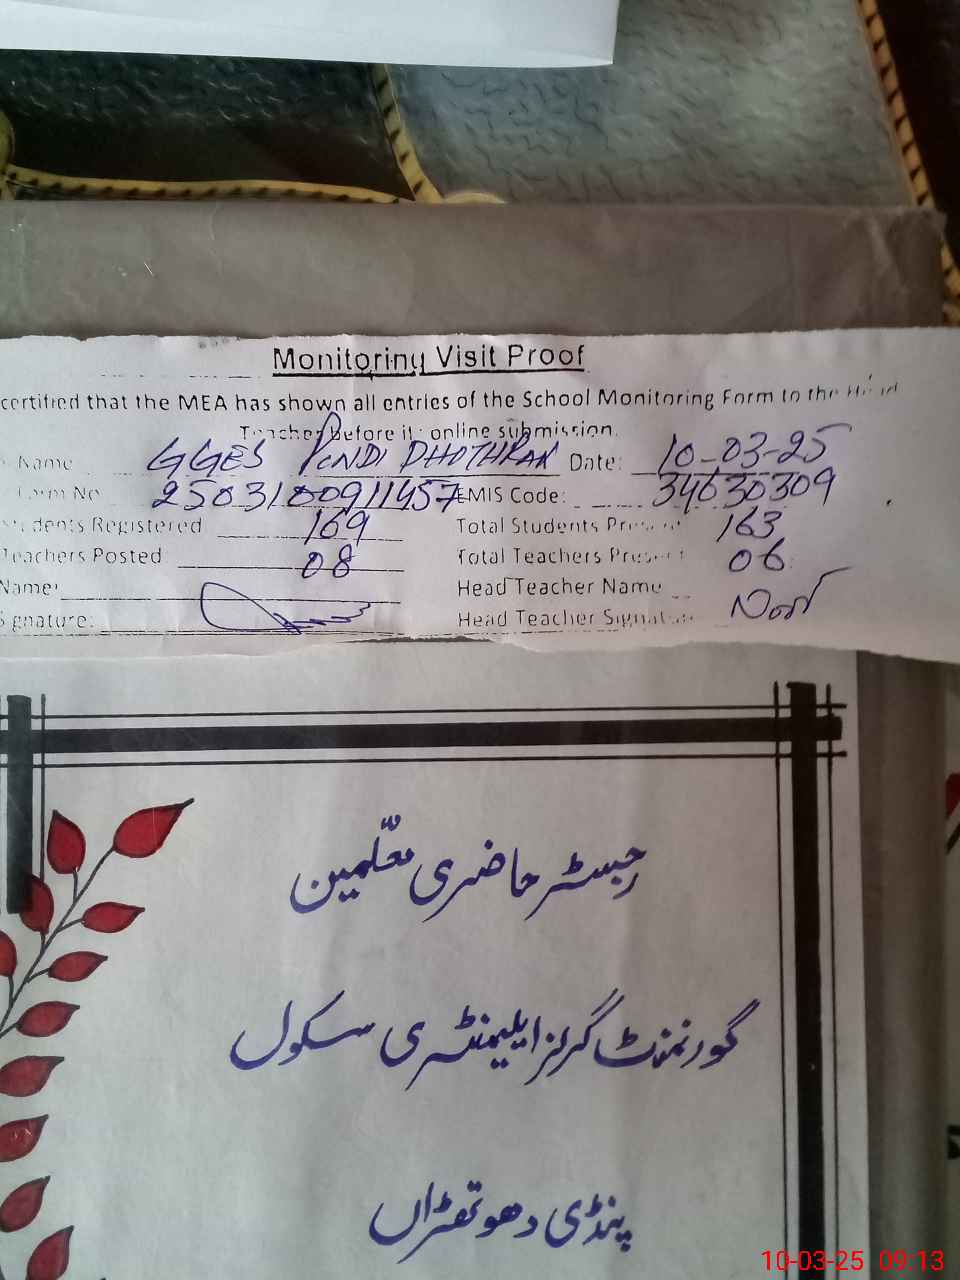 Monitoring Visit Proof
certified that the MEA has shown all entries of the School Monitoring Form to the Head
Teacher before its online submission.
Name GGES PINDI DHOTHRAN Date: 10-03-25
Form No 2503100911457 EMIS Code: 34630309
Students Registered 169 Total Students Present 163
Teachers Posted 08 Total Teachers Present 06
Name: Head Teacher Name
Signature: Head Teacher Signature
رجسٹر حاضری معلّمین
گورنمنٹ گرلز ایلیمنٹری سکول
پنڈی دھوتھڑاں
10-03-25 09:13